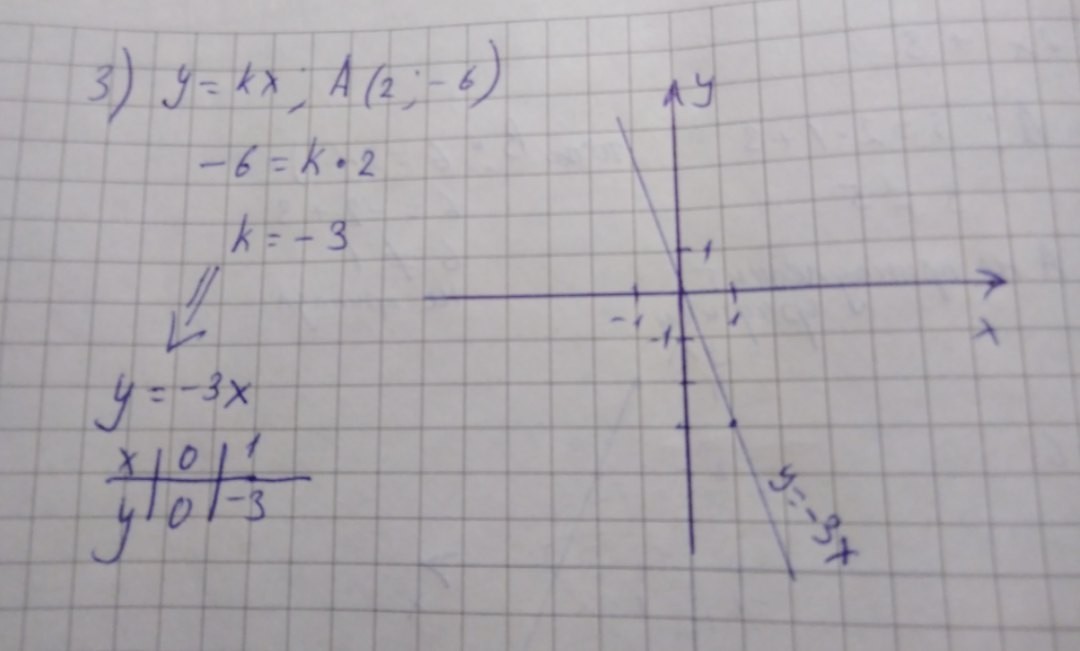 3) y = kx; A(2; -6)
-6 = k · 2
k = -3
y = -3x
x | 0 | 1
y | 0 | -3
y
1
-1 1
x
-1
y=-3x